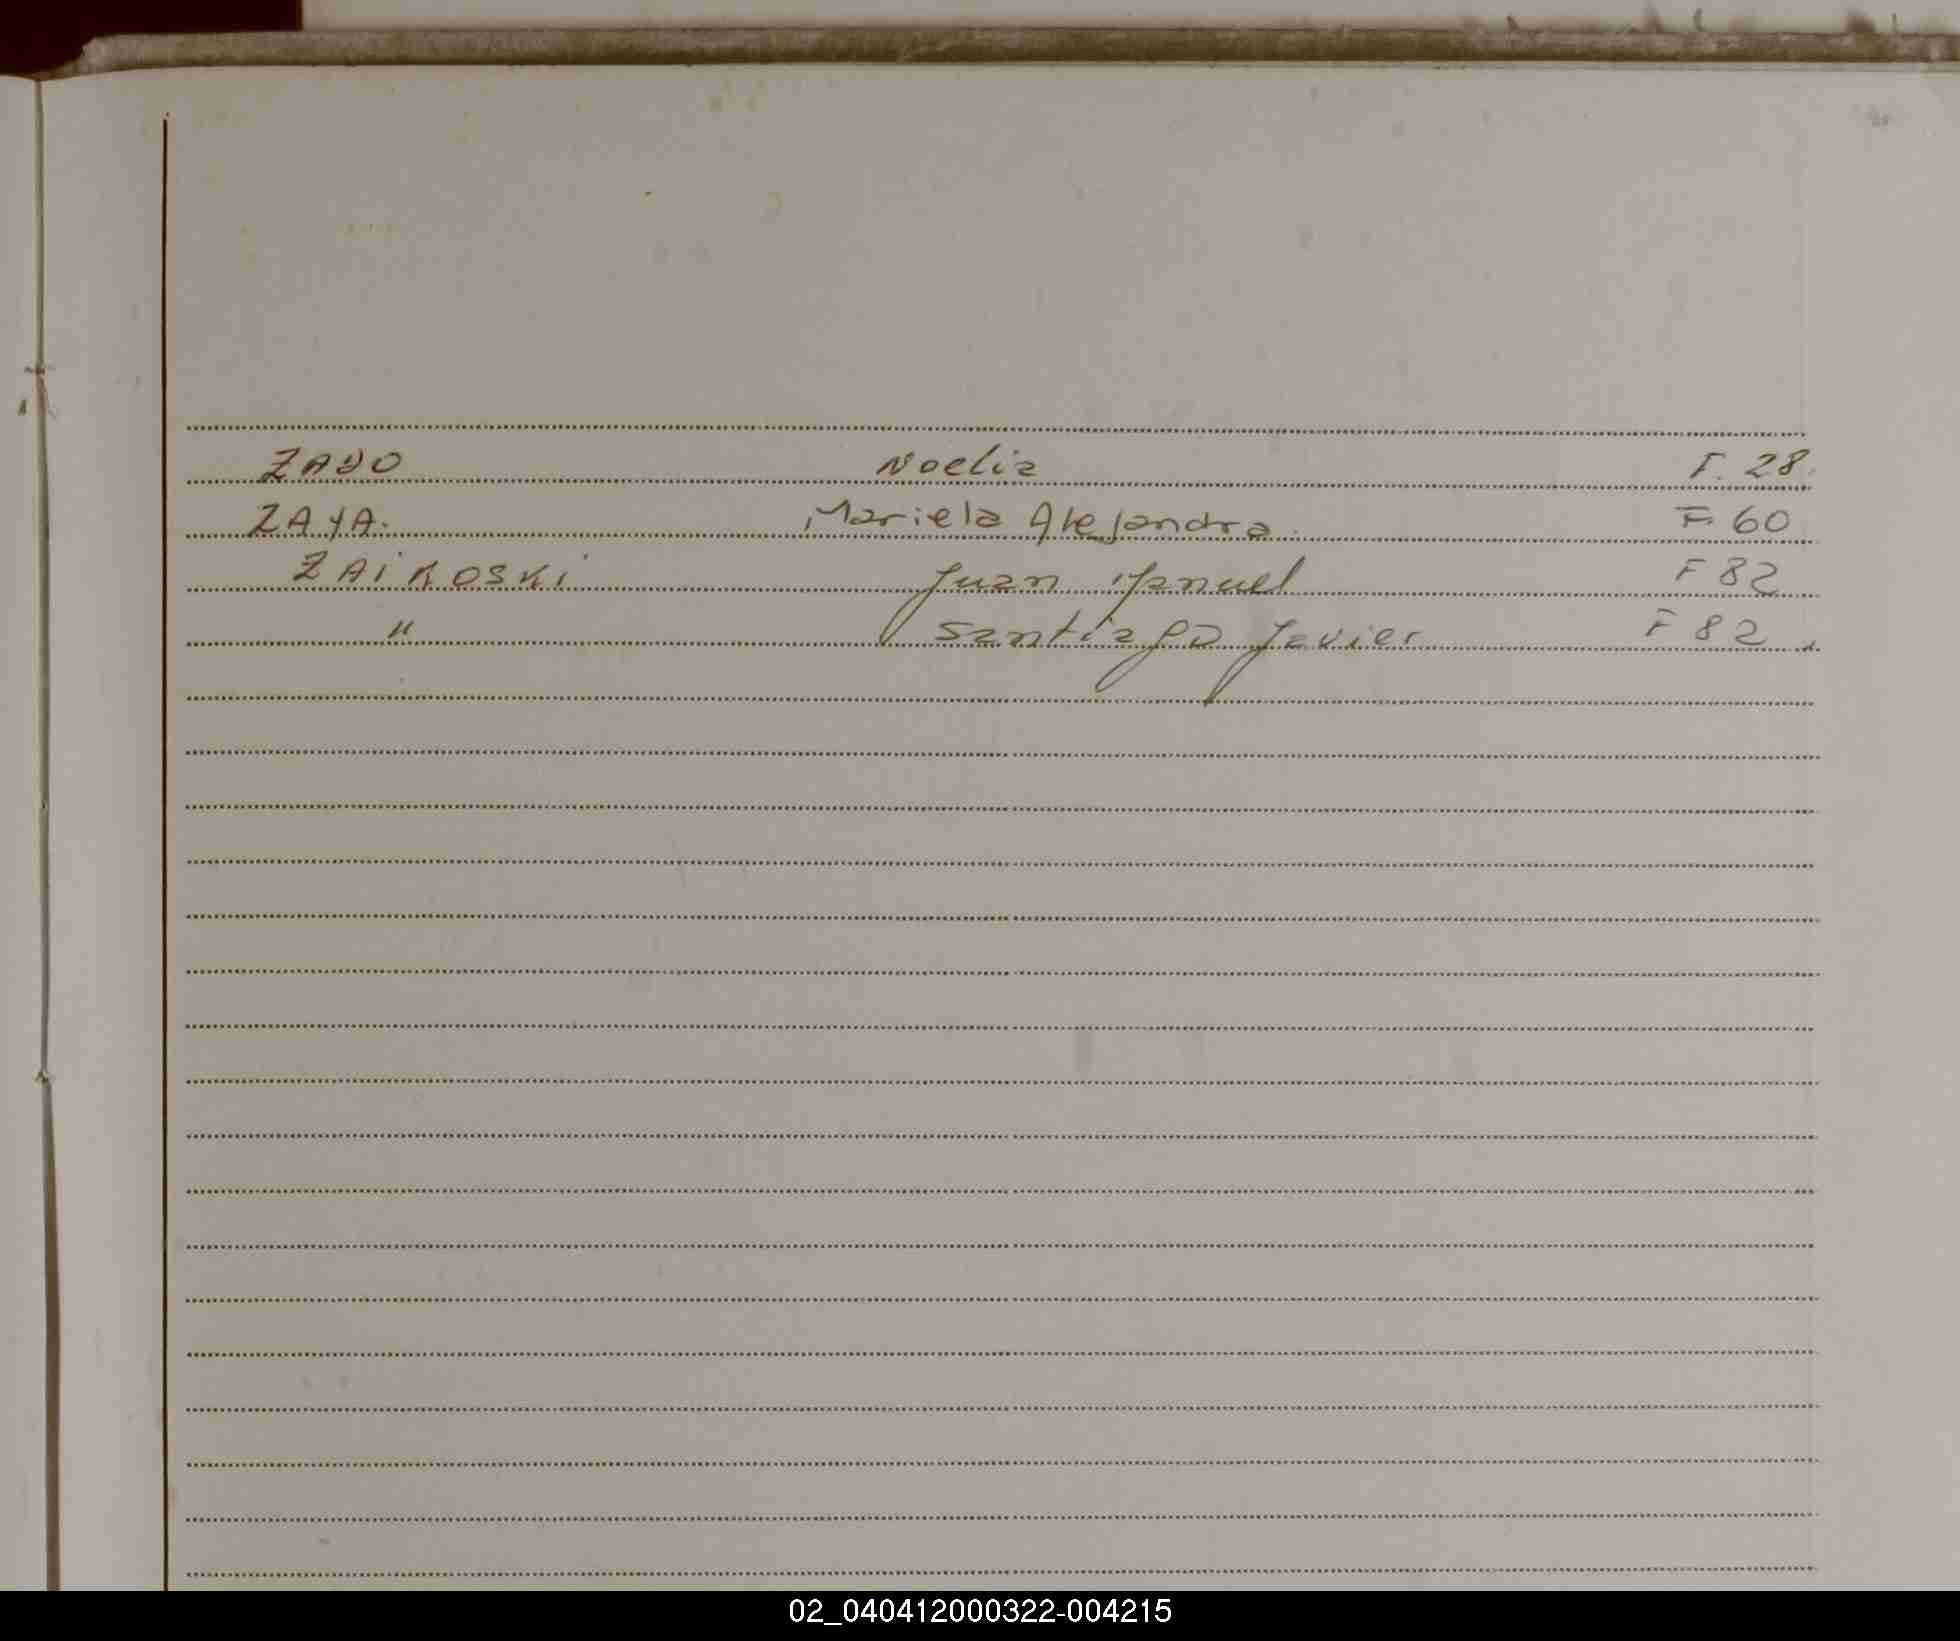 ZAYO Noelia F. 28.
ZAYA. Mariela Alejandra. F. 60
ZAIKOSKI Juan Manuel F 82
" Santiago Javier F 82
02_040412000322-004215